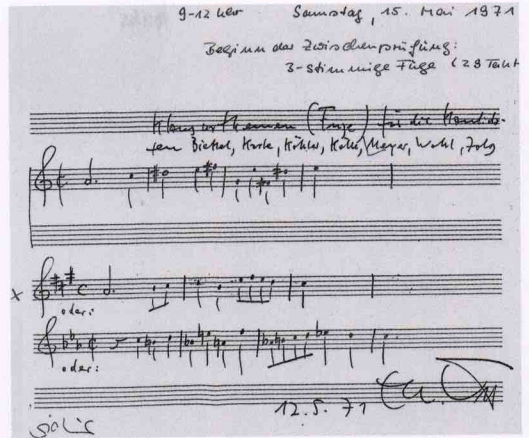 9-12 Uhr Samstag, 15. Mai 1971
Beginn der Zwischenprüfung:
3-stimmige Fuge (28 Takt
Klausurthemen (Fuge) für die Kandida-
ten Bickel, Köhler, Meyer, Wohl,
oder:
oder:
12.5.71